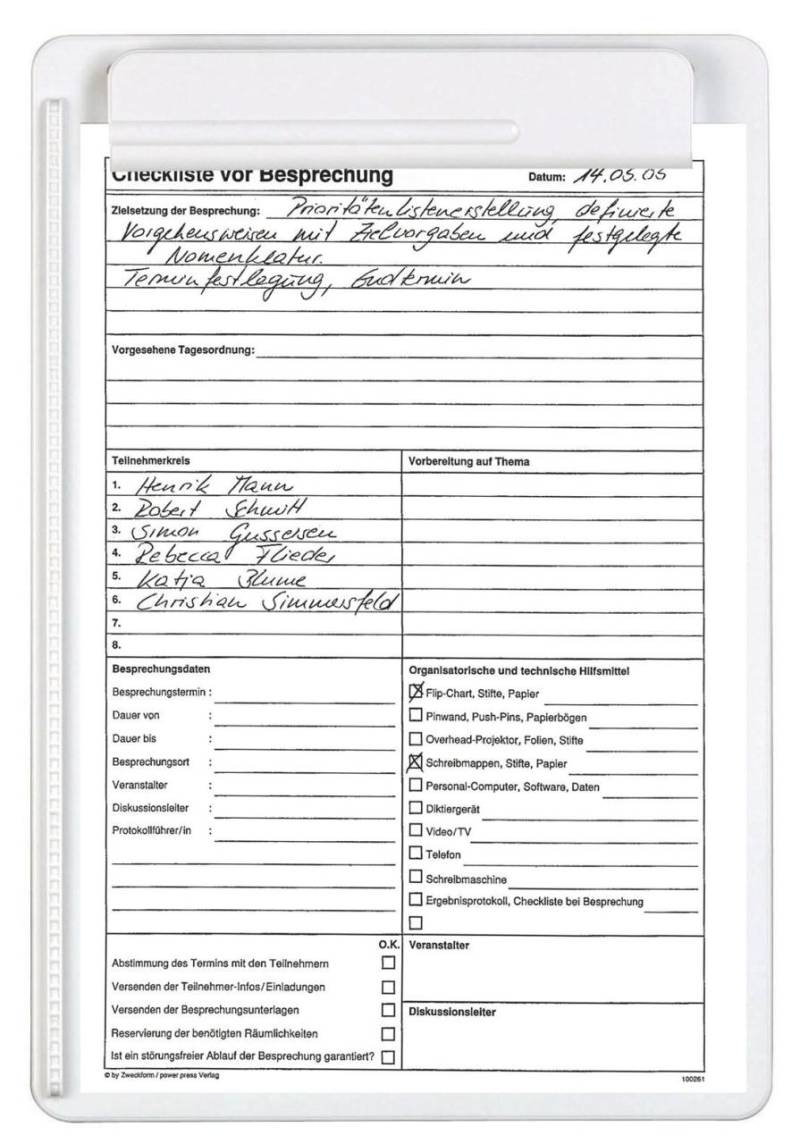 Checkliste vor Besprechung Datum: 14.05.05
Zielsetzung der Besprechung: Prioritätenlistenerstellung, definierte
Vorgehensweisen mit Zielvorgaben und festgelegte
Nomenklatur.
Terminfestlegung, Endtermin
Vorgesehene Tagesordnung:
Teilnehmerkreis
1. Henrik Mann
2. Robert Schmitt
3. Simon Gusseisen
4. Rebecca Flieder
5. Katja Blume
6. Christian Simmersfeld
7.
8.
Vorbereitung auf Thema
Besprechungsdaten
Besprechungstermin :
Dauer von :
Dauer bis :
Besprechungsort :
Veranstalter :
Diskussionsleiter :
Protokollführer/in :
Organisatorische und technische Hilfsmittel
Flip-Chart, Stifte, Papier
Pinwand, Push-Pins, Papierbögen
Overhead-Projektor, Folien, Stifte
Schreibmappen, Stifte, Papier
Personal-Computer, Software, Daten
Diktiergerät
Video/TV
Telefon
Schreibmaschine
Ergebnisprotokoll, Checkliste bei Besprechung
O.K.
Abstimmung des Termins mit den Teilnehmern
Versenden der Teilnehmer-Infos/Einladungen
Versenden der Besprechungsunterlagen
Reservierung der benötigten Räumlichkeiten
Ist ein störungsfreier Ablauf der Besprechung garantiert?
Veranstalter
Diskussionsleiter
© by Zweckform / power press Verlag
100261